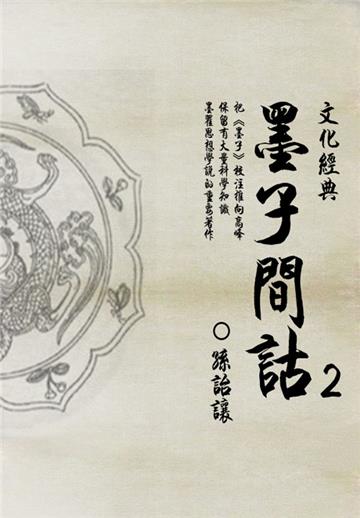 文化經典
墨子間詁2
把《墨子》校注推向高峰
保留有大量科學知識
墨翟思想學說的重要著作
○孫詒讓